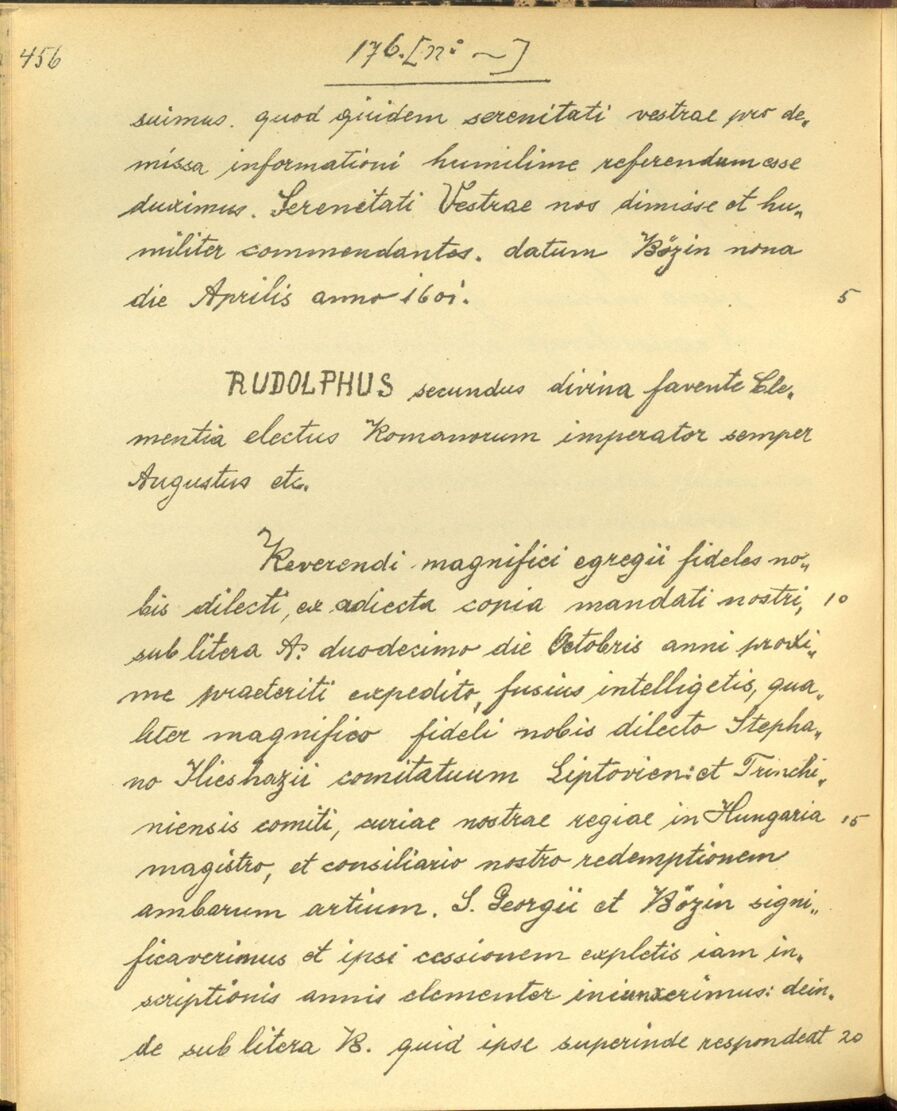 456
176. [n° ~]
suimus. quod quidem serenitati vestrae pro de„
missa informationi humilime referendum esse
duximus. Serenitati Vestrae nos dimisse et hu„
militer commendantes. datum Bözin nona
die Aprilis anno 1601.
5
RUDOLPHUS secundus divina favente Cle„
mentia electus Romanorum imperator semper
Augustus etc.
Reverendi magnifici egregii fideles no„
bis dilecti, ex adiecta copia mandati nostri, 10
sub litera A. duodecimo die Octobris anni proxi„
me praeteriti expedito, fusius intelligetis, qua„
liter magnifico fideli nobis dilecto Stepha„
no Illieshazii comitatuum Liptovien: et Trinchi„
niensis comiti, curiae nostrae regiae in Hungaria 15
magistro, et consiliario nostro redemptionem
ambarum artium. S. Georgii et Bözin signi„
ficaverimus et ipsi cessionem expletis iam in„
scriptionis annis clementer iniunxerimus: dein„
de sub litera B. quid ipse superinde respondeat 20